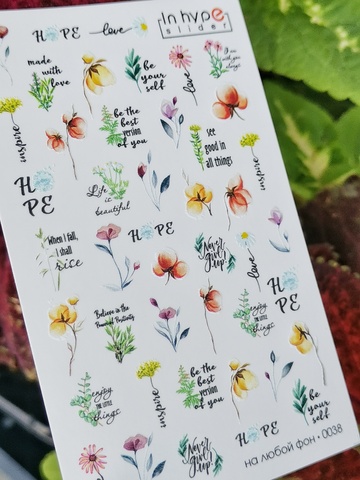 HOPE
love
In hype
slider
made
with
love
be
your
self
love
I am
with you
always
inspire
be the
best
version
of you
see
good in
all things
inspire
HO
PE
Life is
beautiful
When I fall,
I shall
rise
HOPE
Never
give
up
love
HO
PE
Believe in the
enjoy
THE LITTLE
things
enjoy
THE LITTLE
things
inspire
be the
best
version
of you
be
your
self
Never
give
up
HOPE
на любой фон • 0038